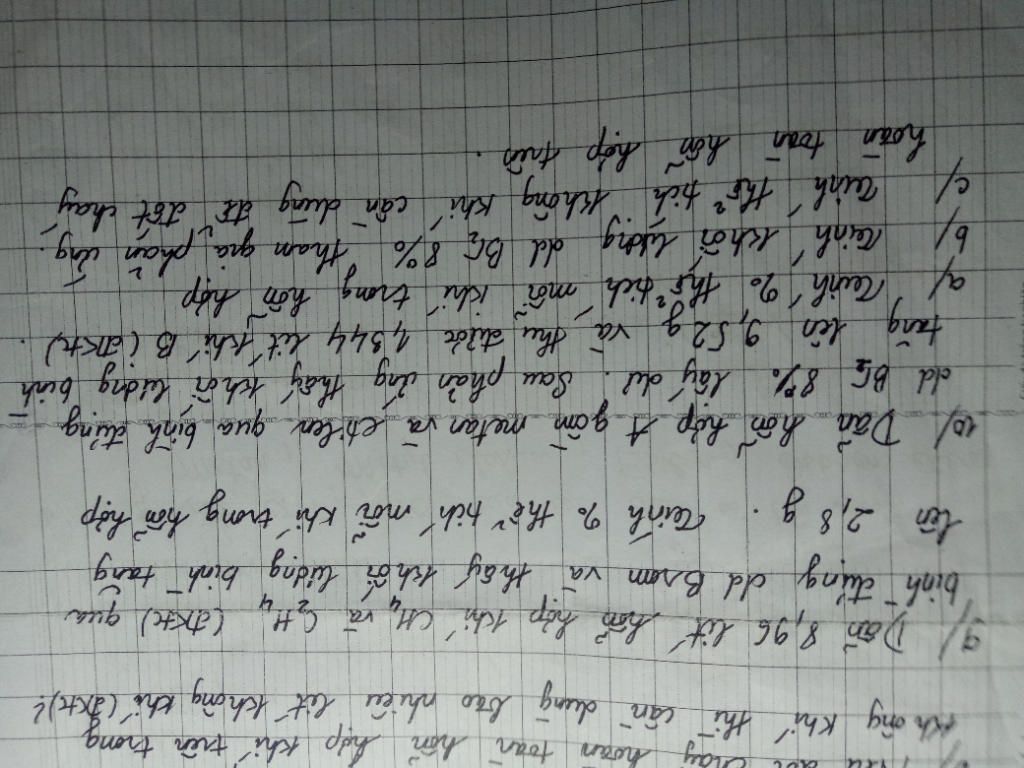 đốt cháy hoàn toàn hỗn hợp khí trên trong
không khí thì cần dùng bao nhiêu lít không khí (đktc)?
9/ Dẫn 8,96 lít hỗn hợp khí CH4 và C2H4 (đktc) qua
bình đựng dd Brom và thấy khối lượng bình tăng
lên 2,8 g. Tính % thể tích mỗi khí trong hỗn hợp
10/ Dẫn hỗn hợp A gồm metan và etilen qua bình đựng
dd Br2 8% lấy dư. Sau phản ứng thấy khối lượng bình
tăng lên 9,52g và thu được 1,344 lít khí B (đktc).
a/ Tính % thể tích mỗi khí trong hỗn hợp
b/ Tính khối lượng dd Br2 8% tham gia phản ứng.
c/ Tính thể tích không khí cần dùng để đốt cháy
hoàn toàn hỗn hợp trên.